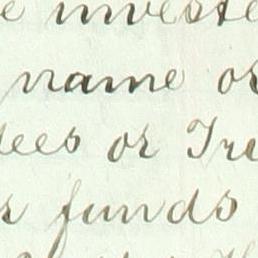 e investe
name or
tees or Tru
r funds